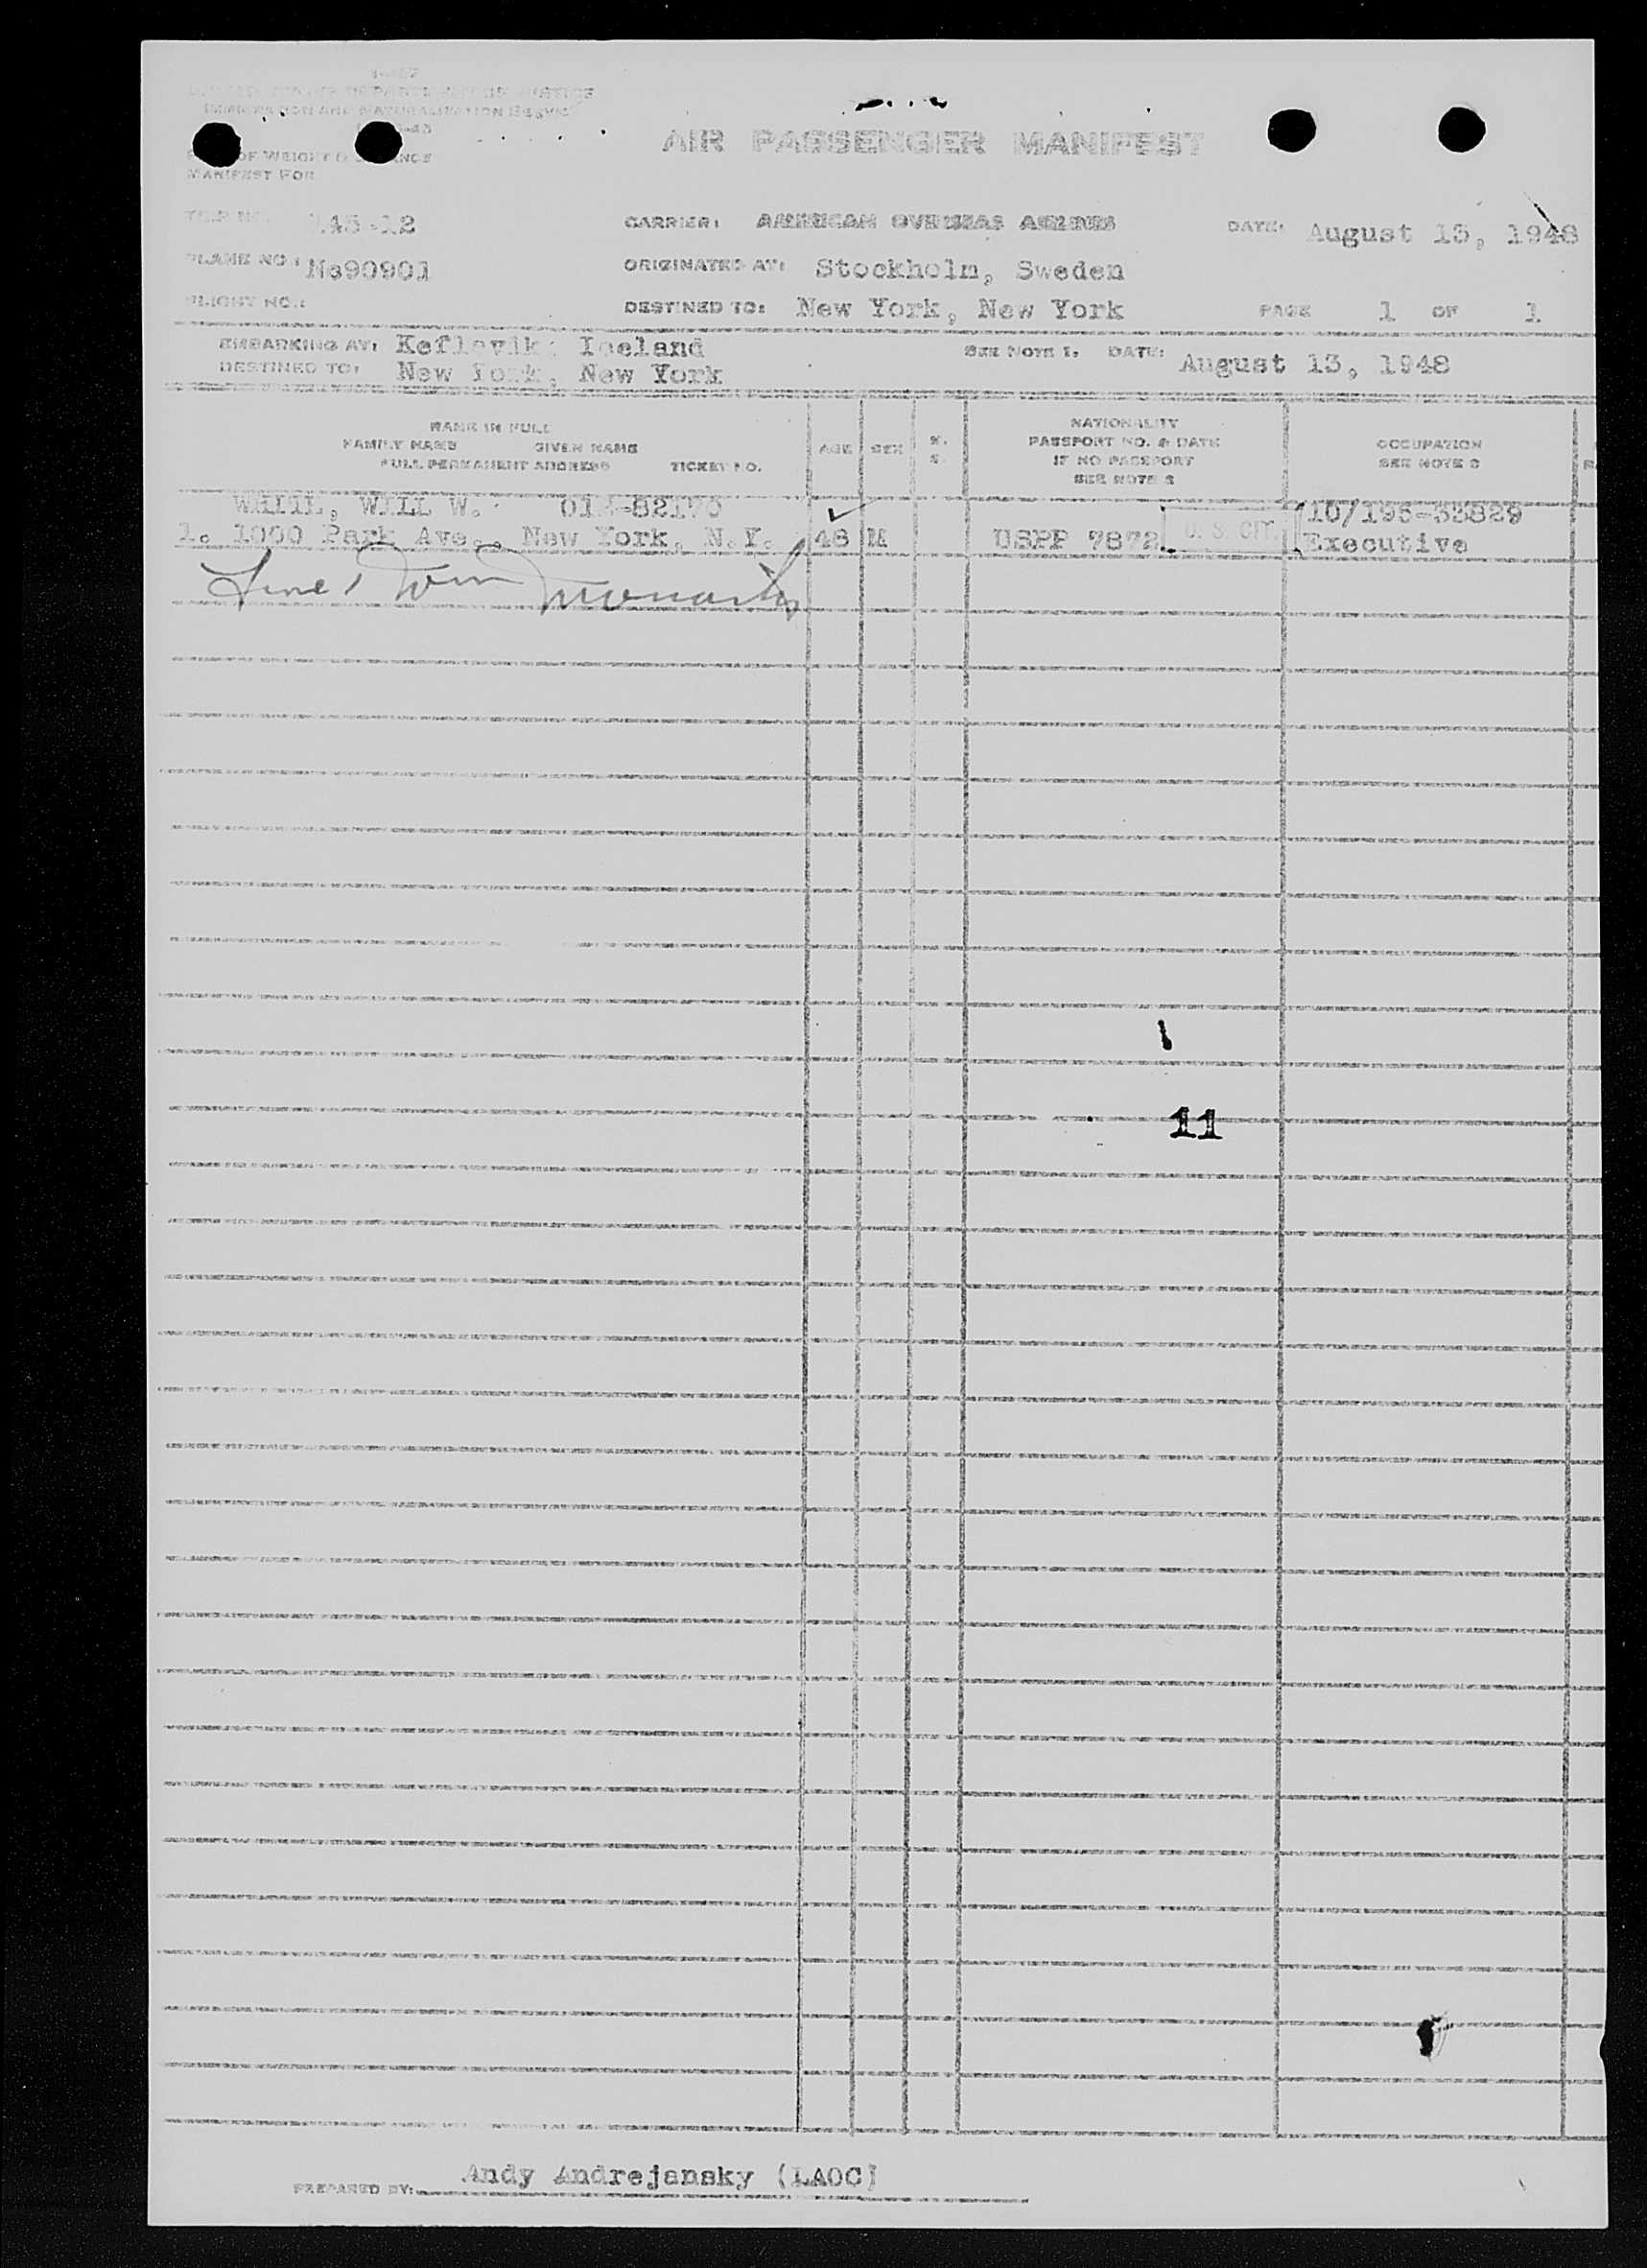 UNITED STATES DEPARTMENT OF JUSTICE
IMMIGRATION AND NATURALIZATION
AIR PASSENGER MANIFEST
OF WEIGHT
MANIFEST FOR
TRIP NO. 145-12 CARRIER: AMERICAN OVERSEAS AIRLINES DATE: August 13, 1948
PLANE NO.: Nc90901 ORIGINATED AT: Stockholm, Sweden
FLIGHT NO.: DESTINED TO: New York, New York PAGE 1 OF 1
EMBARKING AT: Keflavik, Iceland SEE NOTE 1. DATE: August 13, 1948
DESTINED TO: New York, New York
NAME IN FULL
FAMILY NAME GIVEN NAME
FULL PERMANENT ADDRESS TICKET NO.
AGE SEX M. S.
NATIONALITY
PASSPORT NO. & DATE
IF NO PASSPORT
SEE NOTE 2
OCCUPATION
SEE NOTE 3
WHITE, WILL W. 10/195-33829
1. 1000 Park Ave., New York, N.Y. 48 M USPP 7872 U. S. CIT. Executive
11
PREPARED BY: Andy Andrejansky (LAOC)